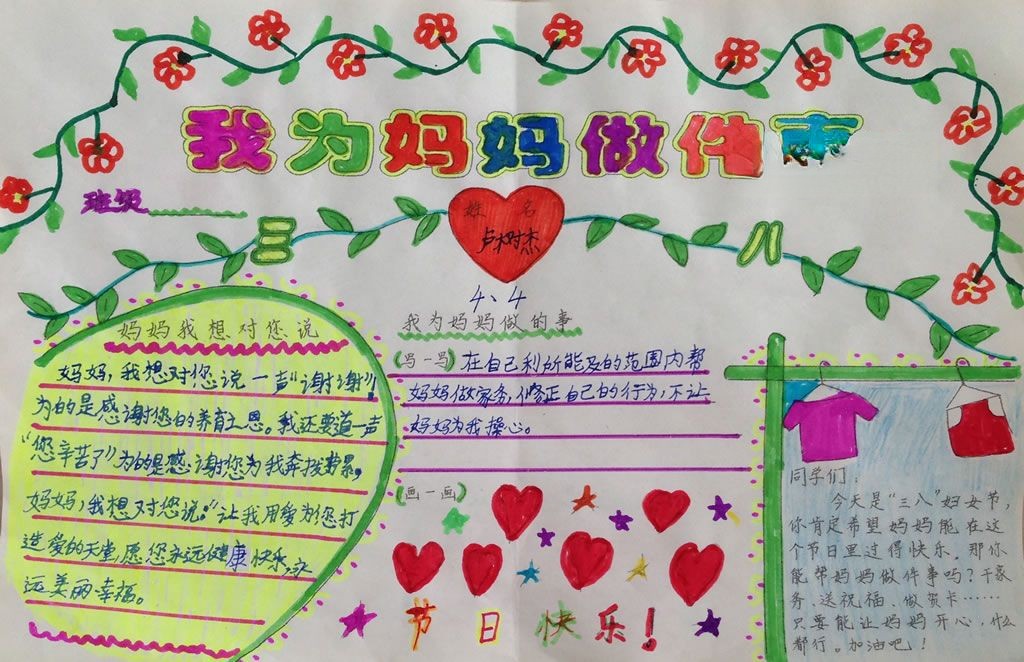 我为妈妈做件
班级
三 八
姓 名
卢树杰
4、4
妈妈我想对您说
妈妈，我想对您说一声“谢谢”！
为的是感谢您的养育之恩。我还要道一声
“您辛苦了”为的是感谢您为我奔波劳累，
妈妈，我想对您说：“让我用爱为您打
造爱的天堂，愿您永远健康快乐，永
远美丽幸福。
我为妈妈做的事
（写一写）在自己利所能及的范围内帮
妈妈做家务，修正自己的行为，不让
妈妈为我操心。
（画一画）
节日快乐！
同学们：
今天是“三八”妇女节，
你肯定希望妈妈能在这
个节日里过得快乐。那你
能帮妈妈做件事吗？干家
务、送祝福、做贺卡……
只要能让妈妈开心，什么
都行。加油吧！